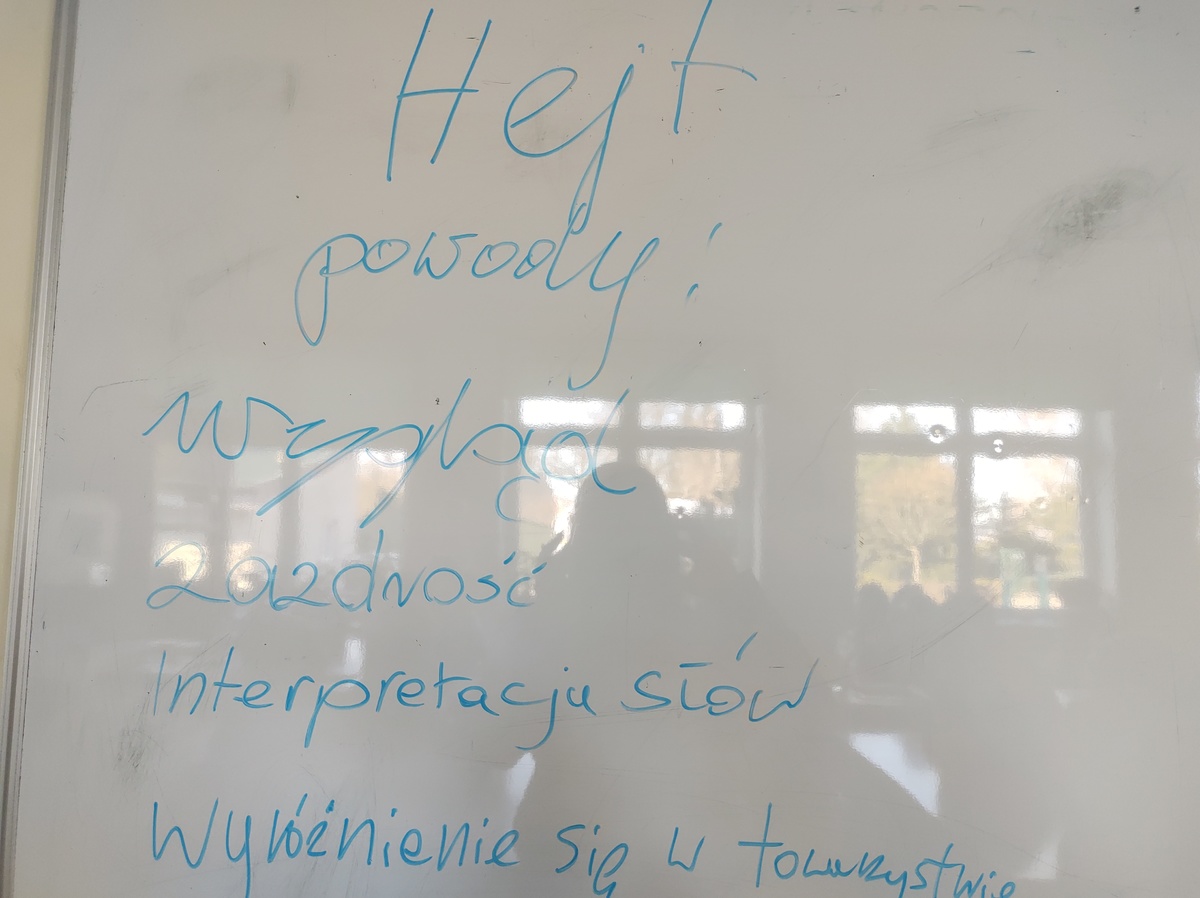 Hejt
powody:
Wygląd
Zazdrość
Interpretacja słów
Wyróżnienie się w towarzystwie